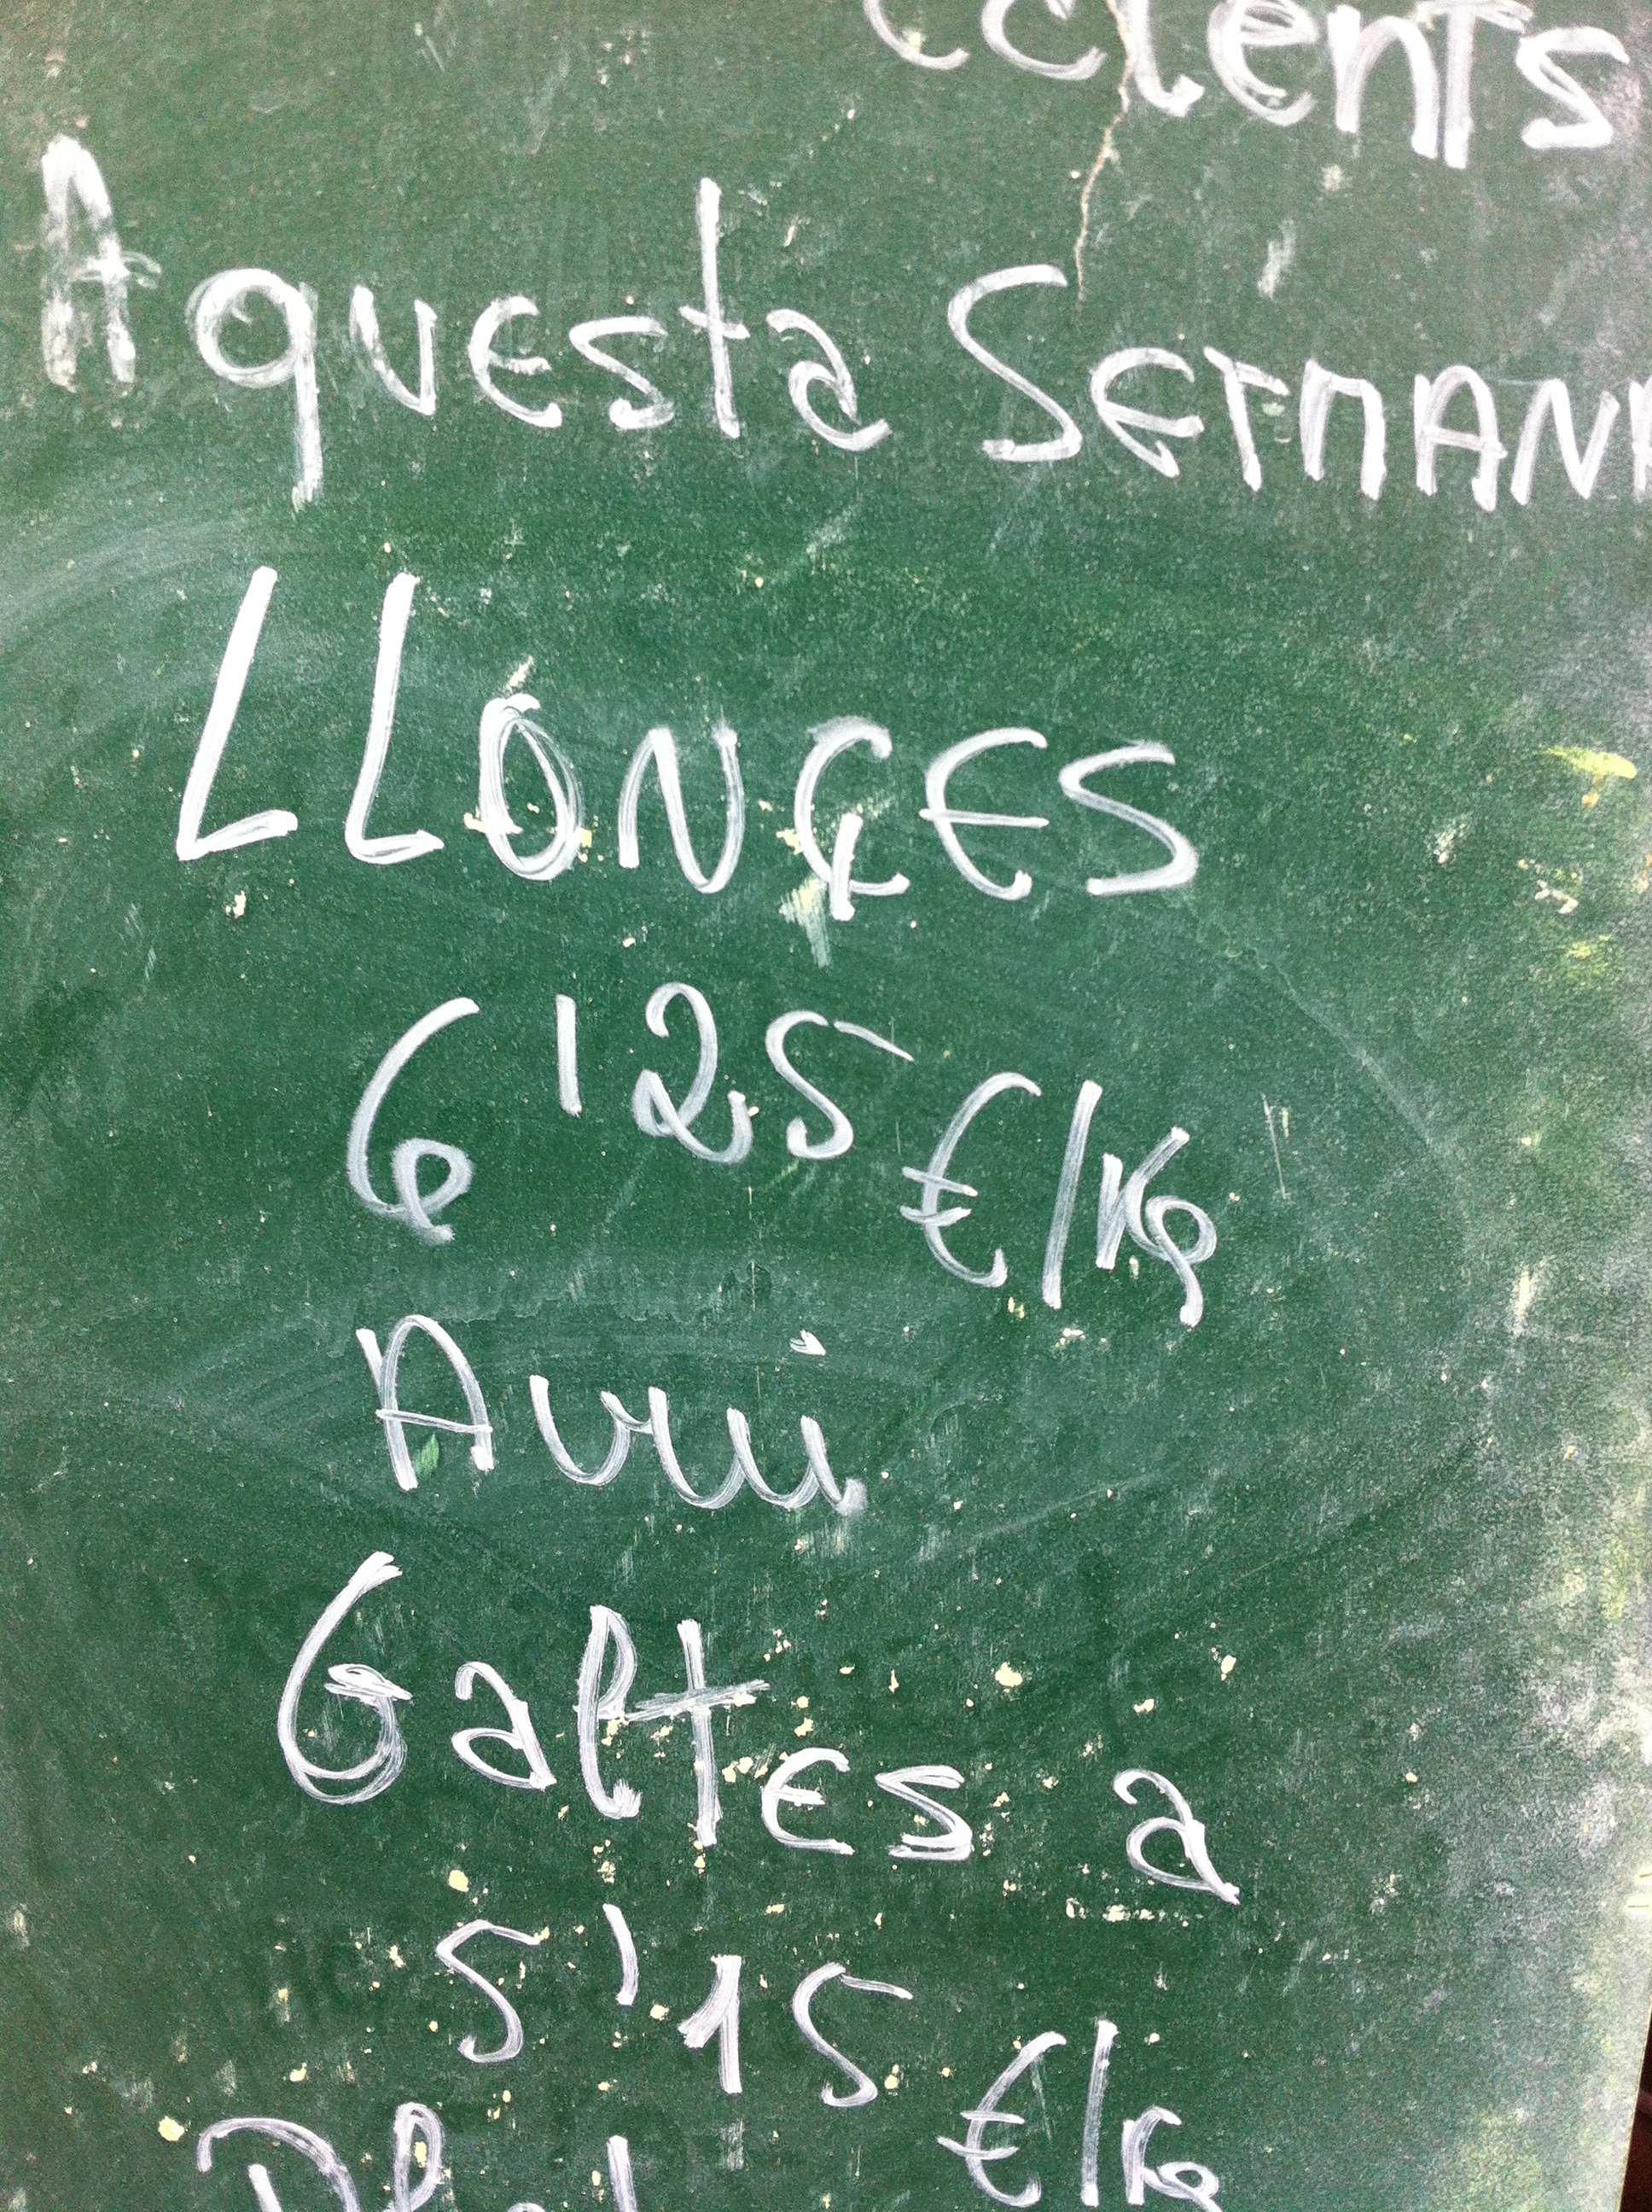 cclents
Aquesta SETMANA
LLONÇES
6'25 €/Kg
Avui
Galtes a
5'15
€/Kg